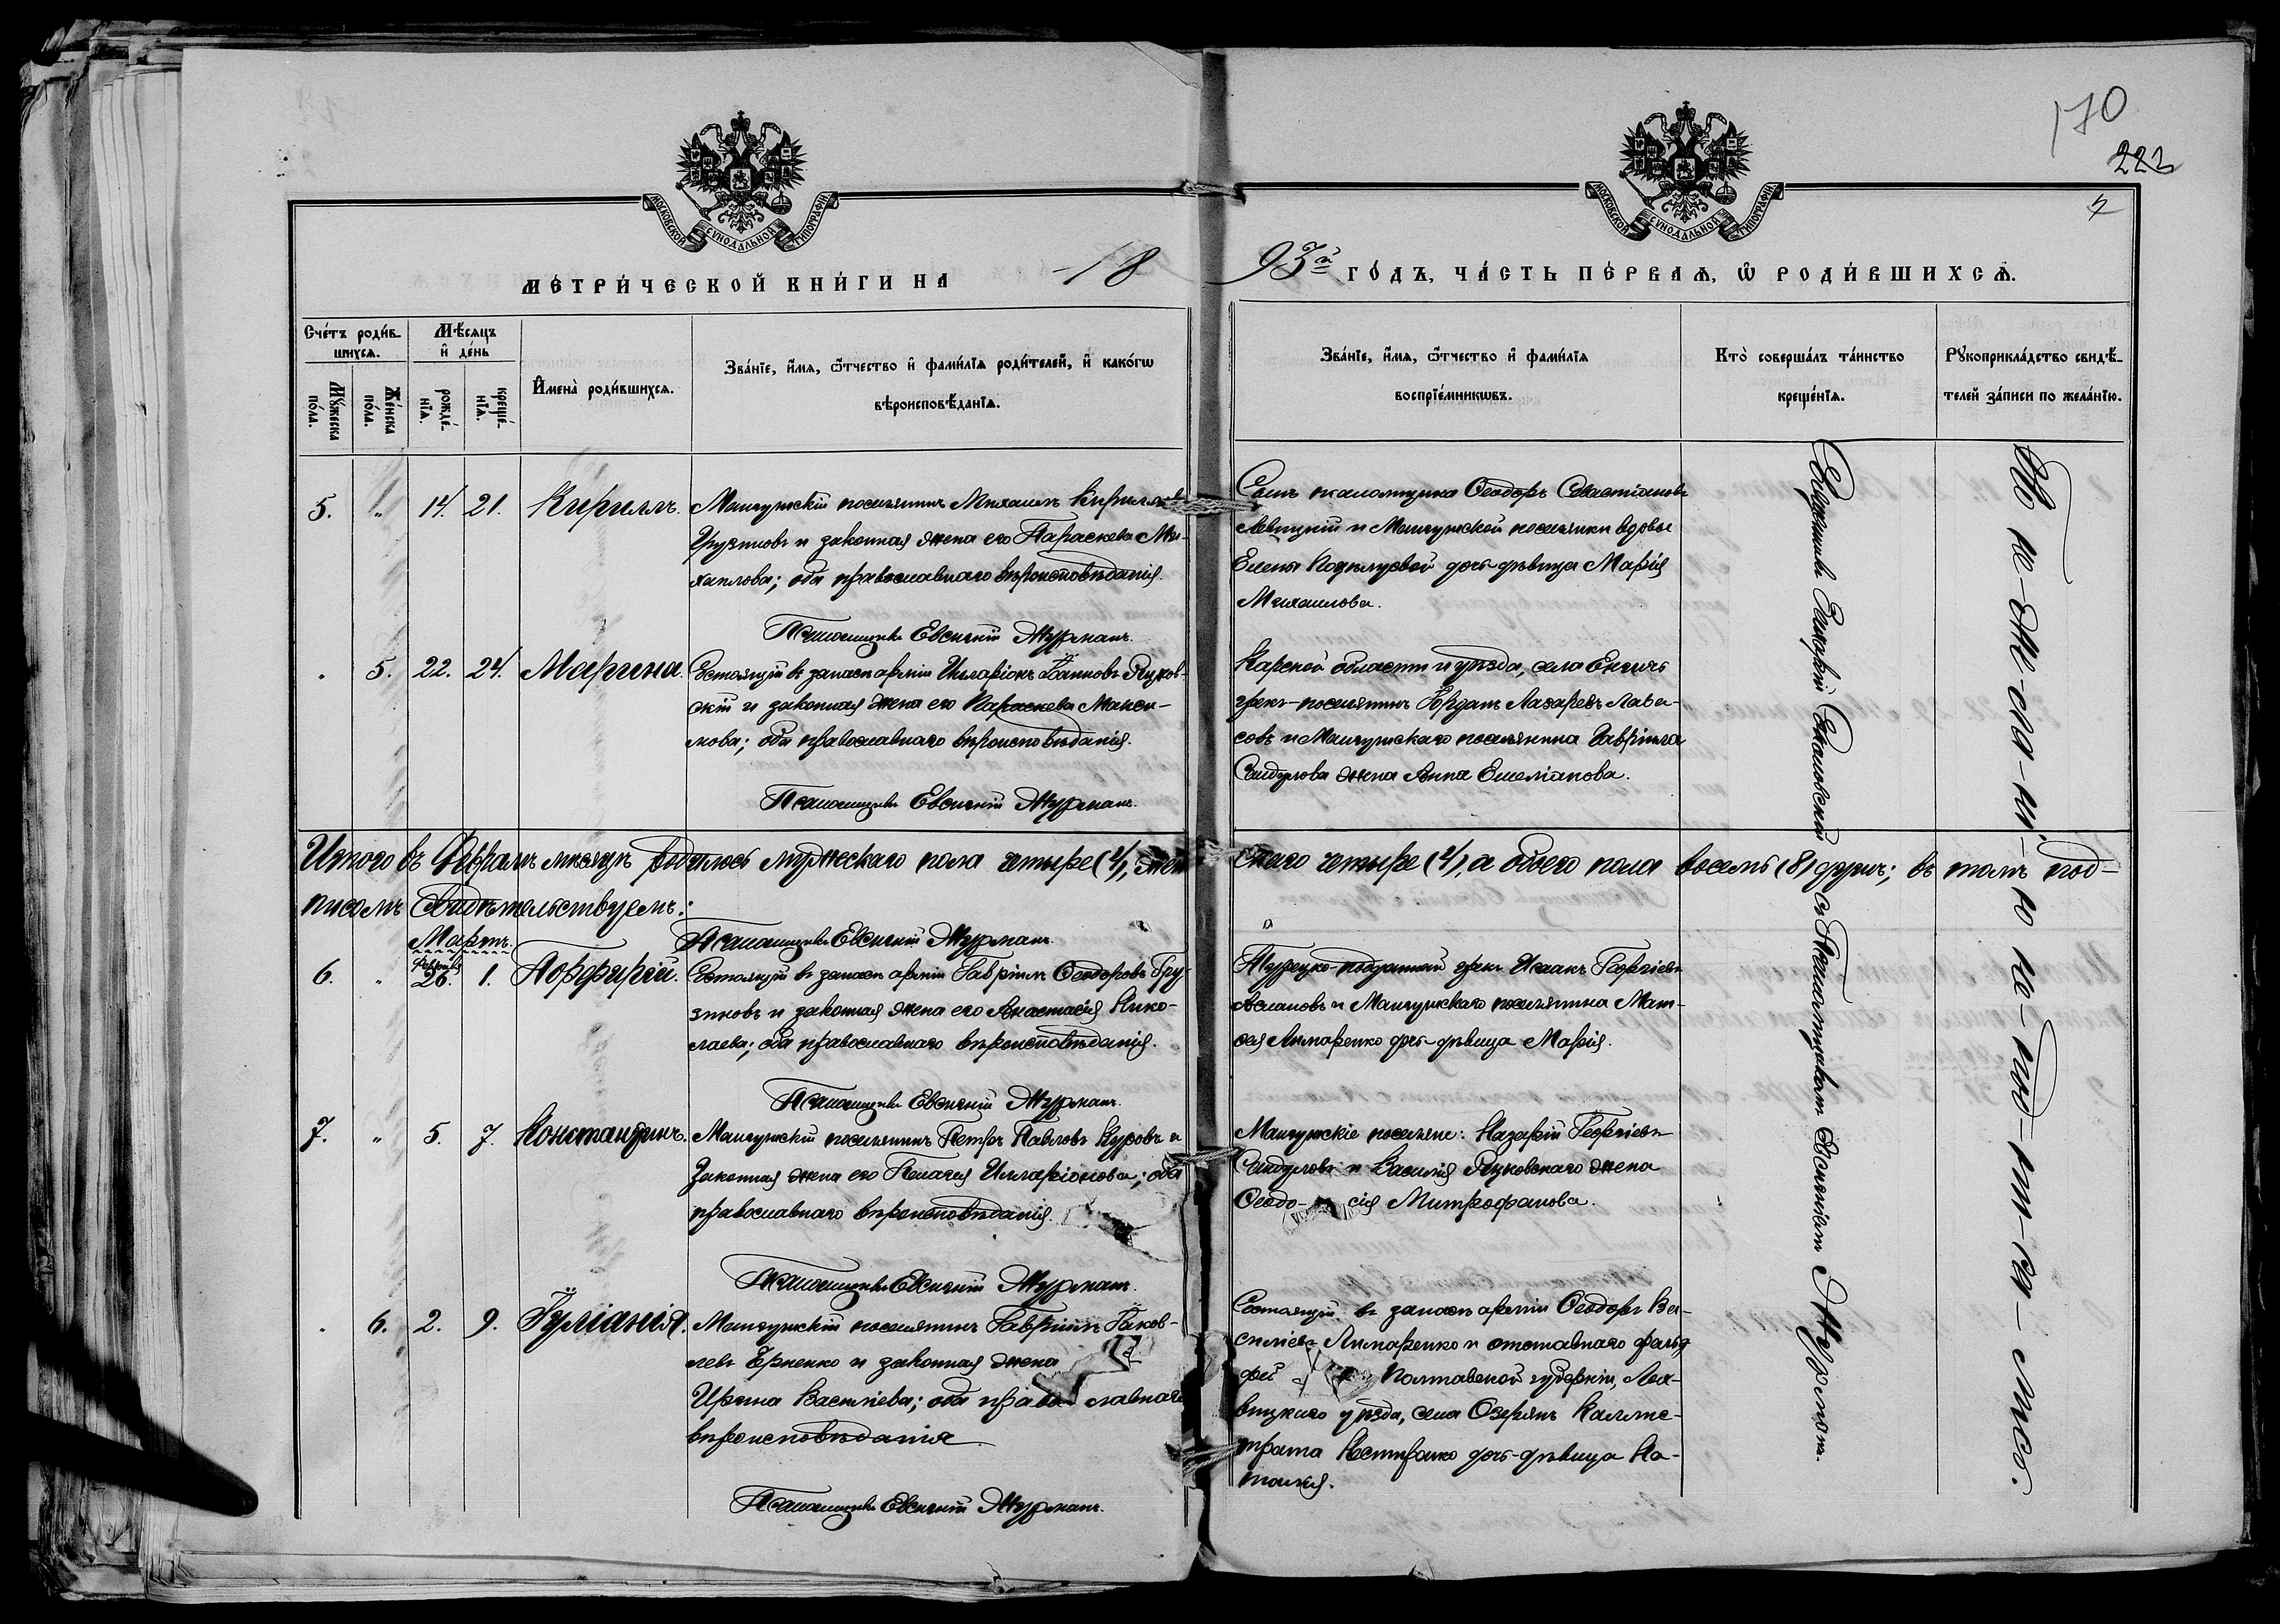 170
222
МОСКОВСКОЙ СѴНОДАЛЬНОЙ ТИПОГРАФІИ
МОСКОВСКОЙ СѴНОДАЛЬНОЙ ТИПОГРАФІИ
МЕТРИ́ЧЕСКОЙ КНИ́ГИ НА 18 93й ГО́ДЪ, ЧА́СТЬ ПЕ́РВАѦ, Ѡ҆ РОДИ́ВШИХСѦ.
Сче́тъ роди́вшихсѧ.
Мꙋ́жеска по́ла.
Же́нска по́ла.
Мѣ́сѧцъ и҆ де́нь
рожде́нїѧ.
креще́нїѧ.
И҆мена̀ роди́вшихсѧ.
Зва́нїе, и҆́мѧ, ѻ҆́тчество и҆ фами́лїѧ роди́телей, и҆ како́гѡ
вѣроисповѣ́данїѧ.
Зва́нїе, и҆́мѧ, ѻ҆́тчество и҆ фами́лїѧ
воспрїе́мникѡвъ.
Кто̀ соверша́лъ та́инство
креще́нїѧ.
Рꙋкоприкла́дство свидѣ́телей за́писи по жела́нїю.
5. " 14. 21. Кириллъ.
Мангушскій поселянинъ Михаилъ Кирилловъ
Грузиновъ и законная жена его Параскева Ми-
хаилова; оба православнаго вѣроисповѣданія.
Псаломщикъ Евгеній Журманъ.
Сынъ псаломщика Ѳеодоръ Севастіановъ
Левицкій и Мангушской поселянки вдовы
Елены дочь-дѣвица Марія
Михаилова.
" 5. 22. 24. Марина.
Состоящій въ запасѣ арміи Иларіонъ Іоанновъ Яцков-
скій и законная жена его Параскева Макси-
мова; оба православнаго вѣроисповѣданія.
Псаломщикъ Евгеній Журманъ.
Карской области и уѣзда, села
грекъ-поселянинъ Іорданъ Лазаревъ
и Мангушскаго поселянина Гавріила
Сандулова жена Анна Емеліанова.
Итого въ Февралѣ мѣсяцѣ родилось мужескаго пола четыре (4), жен-
скаго четыре (4), а обоего пола восемь (8) душъ; въ томъ под-
писомъ свидѣтельствуемъ:
Псаломщикъ Евгеній Журманъ.
Мартъ.
6. " Февраля 26. 1. Порфирій.
Состоящій въ запасѣ арміи Гавріилъ Ѳеодоровъ Гру-
зиновъ и законная жена его Анастасія Нико-
лаева; оба православнаго вѣроисповѣданія.
Псаломщикъ Евгеній Журманъ.
Турецко-подданный грекъ Исаакъ Георгіевъ
Аслановъ и Мангушскаго поселянина Мат-
ѳея Лимаренко дочь-дѣвица Марія.
7. " 5. 7. Константинъ.
Мангушскій поселянинъ Петръ Павловъ Куровъ и
законная жена его Пелагія Илларіонова; оба
православнаго вѣроисповѣданія.
Псаломщикъ Евгеній Журманъ.
Мангушскіе поселяне: Назарій Георгіевъ
Сандуловъ и Василія Яцковскаго жена
Ѳеодо- сія Митрофанова.
" 6. 2. 9. Іуліанія.
Мангушскій поселянинъ Гавріилъ Іаков-
левъ и законная жена
Ирина Васильева; оба православнаго
вѣроисповѣданія.
Псаломщикъ Евгеній Журманъ.
Состоящій въ запасѣ арміи Ѳеодоръ Ва-
силіевъ Лимаренко и отставнаго фельд-
Полтавской губерніи, Лох-
вицкаго уѣзда, села Озерянъ Каллис-
трата Нестеренко дочь-дѣвица На-
талія.
Священникъ съ Псаломщикомъ Евгеніемъ Журманъ.